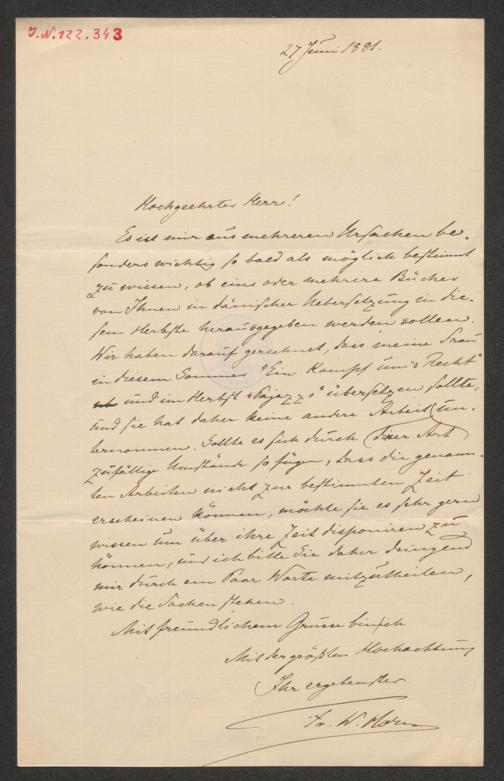 I.N. 122.343
27 Juni 1881.
Hochgeehrter Herr!
Es ist mir aus mehreren Ursachen be-
sonders wichtig so bald als möglich bestimmt
zu wissen, ob eins oder mehrere Bücher
von Ihnen in dänischer Uebersetzung in die-
sem Herbste herausgegeben werden sollen.
Wir haben darauf gerechnet, dass meine Frau
in diesem Sommer "Ein Kampf um's Recht"
und im Herbst "Bajazzo" übersetzen sollte,
und sie hat daher keine andere Arbeit un-
ternommen. Sollte es sich durch Art
zufällige Umstände so fügen, dass die genann-
ten Arbeiten nicht zur bestimmten Zeit
erscheinen können, möchte sie es sehr gern
wissen um über ihre Zeit disponiren zu
können, und ich bitte Sie daher dringend
mir durch ein Paar Worte mitzutheilen,
wie die Sachen stehen.
Mit freundlichem Grusse bin ich
Mit der größten Hochachtung
Ihr ergebenster
Fr. W. Horn